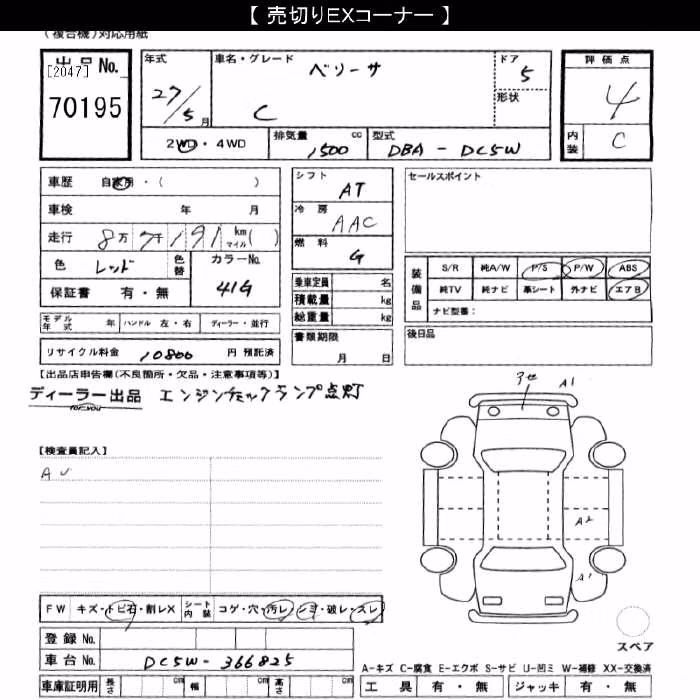 【 売切りEXコーナー 】
(複合機)対応用紙
出品No.
[2047]
70195
年式
27/5月
車名・グレード
ベリーサ
C
ドア
5
形状
評価点
4
内装
C
2WD・4WD
排気量 1500 cc
型式 DBA - DC5W
車歴 自家用・( )
車検 年 月
走行 8万7千191 km マイル ( )
色 レッド 色替
カラーNo. 41G
保証書 有・無
シフト AT
冷房 AAC
燃料 G
乗車定員 名
積載量 kg
総重量 kg
書類期限 月 日
セールスポイント
装備品
S/R 純A/W P/S P/W ABS
純TV 純ナビ 革シート 外ナビ エアB
ナビ型番:
後日品
モデル年式 年 ハンドル 左・右 ディーラー・並行
リサイクル料金 10800 円 預託済
【出品店申告欄(不良箇所・欠品・注意事項等)】
ディーラー出品 エンジンチェックランプ点灯
for you
アセ
A1
【検査員記入】
A2
A1
FW キズ・トビ石・割レX シート内装 コゲ・穴・汚レ・シミ・破レ・スレ
登録No.
車台No. DC5W-366825
車庫証明用 長さ cm 幅 cm 高さ cm
スペア
A-キズ C-腐食 E-エクボ S-サビ U-凹ミ W-補修 XX-交換済
工具 有・無 ジャッキ 有・無